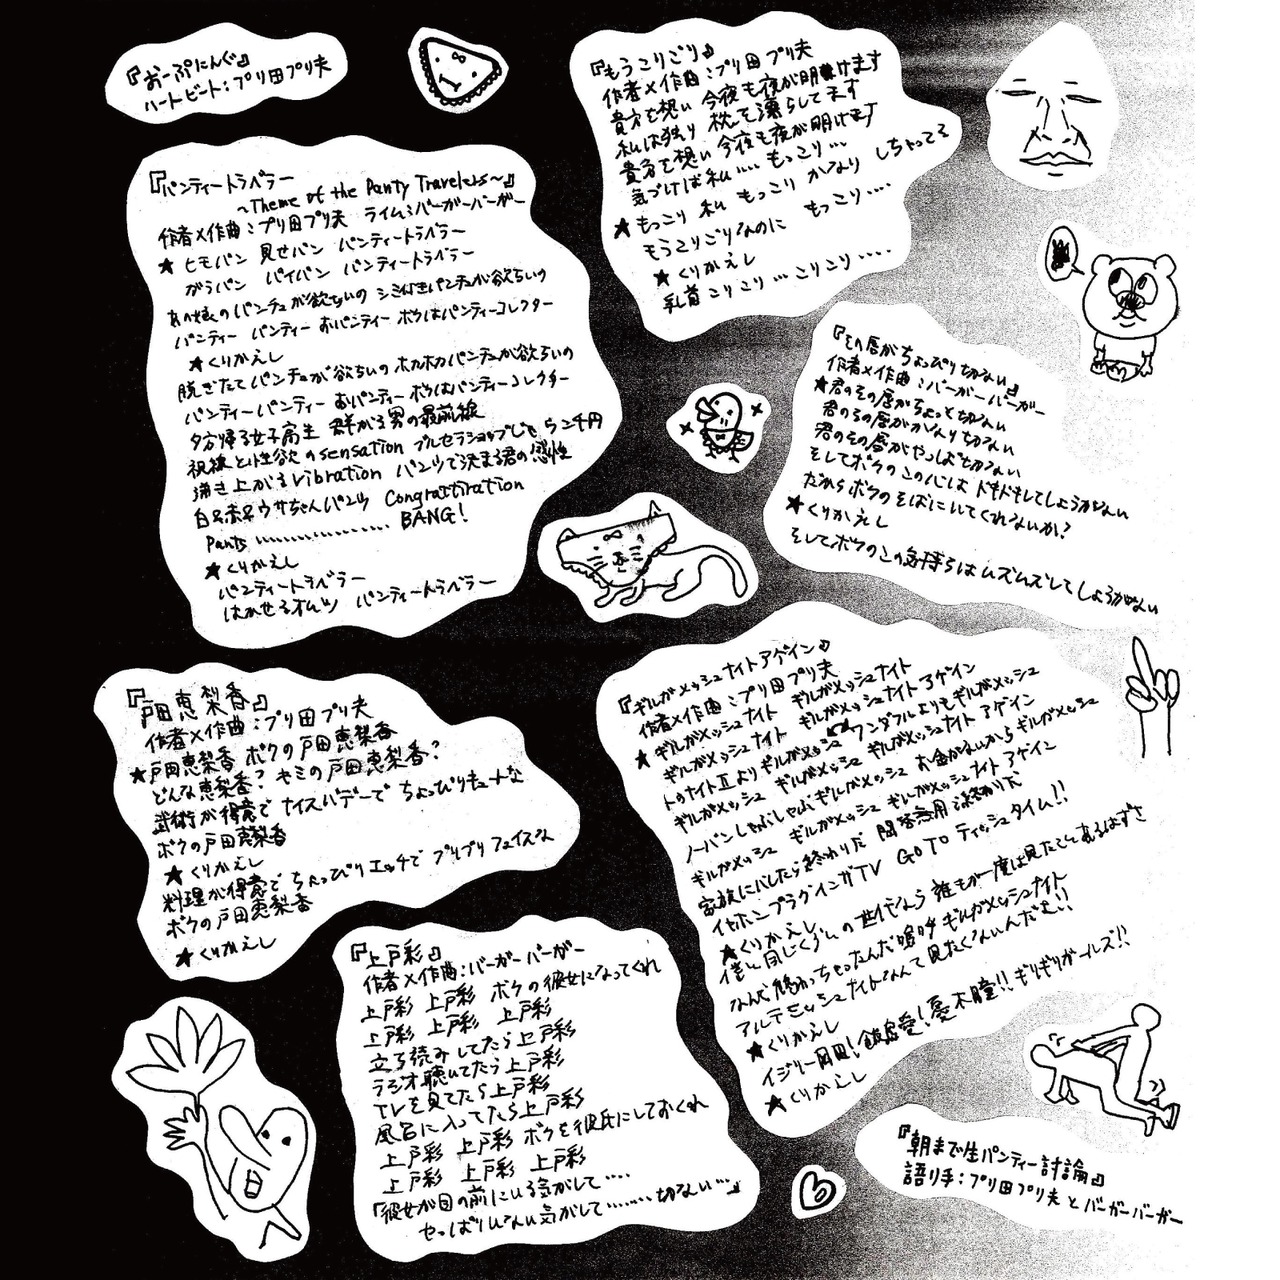 『おーぷにんぐ』
ハートビート：プリ田プリ夫
『パンティートラベラー
～Theme of the Panty Travelers～』
作者×作曲：プリ田プリ夫 ライム：バーガーバーガー
★ヒモパン 見せパン パンティートラベラー
がらパン パイパン パンティートラベラー
あの娘のパンチュが欲ちいの シミ付きパンチュが欲ちいの
パンティー パンティー おパンティー ボクはパンティーコレクター
★くりかえし
脱ぎたてパンチュが欲ちいの ホカホカパンチュが欲ちいの
パンティーパンティー おパンティー ボクはパンティーコレクター
夕方帰る女子高生 群がる男の最前線
視線と性欲のsensation ブルセラショップじゃ5二千円
沸き上がるvibration パンツで決まる君の感性
白ネ赤ネウサちゃんパンツ Congratiration
Pants ……………… BANG!
★くりかえし
パンティートラベラー
はかせるオムツ パンティートラベラー
『もうこりごり』
作者×作曲：プリ田プリ夫
貴方を想い 今夜も夜が明けます
私は独り 枕を濡らしてます
貴方を想い 今夜も夜が明けます
気づけば私…… もっこり…
★もっこり 私 もっこり かなり しちゃってる
もうこりごりなのに もっこり……
★くりかえし
乳首 こりこり … こりこり ……
『その唇がちょっぴり切ない』
作者×作曲：バーガーバーガー
★君のその唇がちょっと切ない
君のその唇がかなり切ない
君のその唇がやっぱ切ない
そしてボクのこの心は ドキドキしてしょうがない
だからボクのそばにいてくれないか？
★くりかえし
そしてボクのこの気持ちはムズムズしてしょうがない
『戸田恵梨香』
作者×作曲：プリ田プリ夫
★戸田恵梨香 ボクの戸田恵梨香
どんな恵梨香？ キミの戸田恵梨香？
武術が得意で ナイスバデーで ちょっぴりキュートな
ボクの戸田恵梨香
★くりかえし
料理が得意で ちょっぴりエッチで プリプリフェイスな
ボクの戸田恵梨香
★くりかえし
『上戸彩』
作者×作曲：バーガーバーガー
上戸彩 上戸彩 ボクの彼女になってくれ
上戸彩 上戸彩 上戸彩
立ち読みしてたら上戸彩
ラジオ聴いてたら上戸彩
TVを見てたら上戸彩
風呂に入ってたら上戸彩
上戸彩 上戸彩 ボクを彼氏にしておくれ
上戸彩 上戸彩 上戸彩
「彼女が目の前にいる気がして……
やっぱりいない気がして………切ない…」
『ギルガメッシュナイトアゲイン』
作者×作曲：プリ田プリ夫
★ギルガメッシュナイト ギルガメッシュナイト
ギルガメッシュナイト ギルガメッシュナイト アゲイン
トゥナイトⅡよりギルガメッシュ ワンダフルよりもギルガメッシュ
ギルガメッシュ ギルガメッシュ ギルガメッシュナイト アゲイン
ノーパンしゃぶしゃぶギルガメッシュ お金がないからギルガメッシュ
ギルガメッシュ ギルガメッシュ ギルガメッシュナイト アゲイン
家族にバレたら終わりだ 問答無用で終わりだ
イヤホンプラグインザTV GO TO ティッシュタイム!!
★くりかえし
僕と同じくらいの世代なら 誰もが一度は見たことあるはずさ
なんで終わっちゃったんだ嗚呼 ギルガメッシュナイト
アルテミッシュナイトなんて 見たくないんだよ!!
★くりかえし
イジリー岡田！飯島愛！憂木瞳!!ギリギリガールズ!!
★くりかえし
『朝まで生パンティー討論』
語り手：プリ田プリ夫とバーガーバーガー